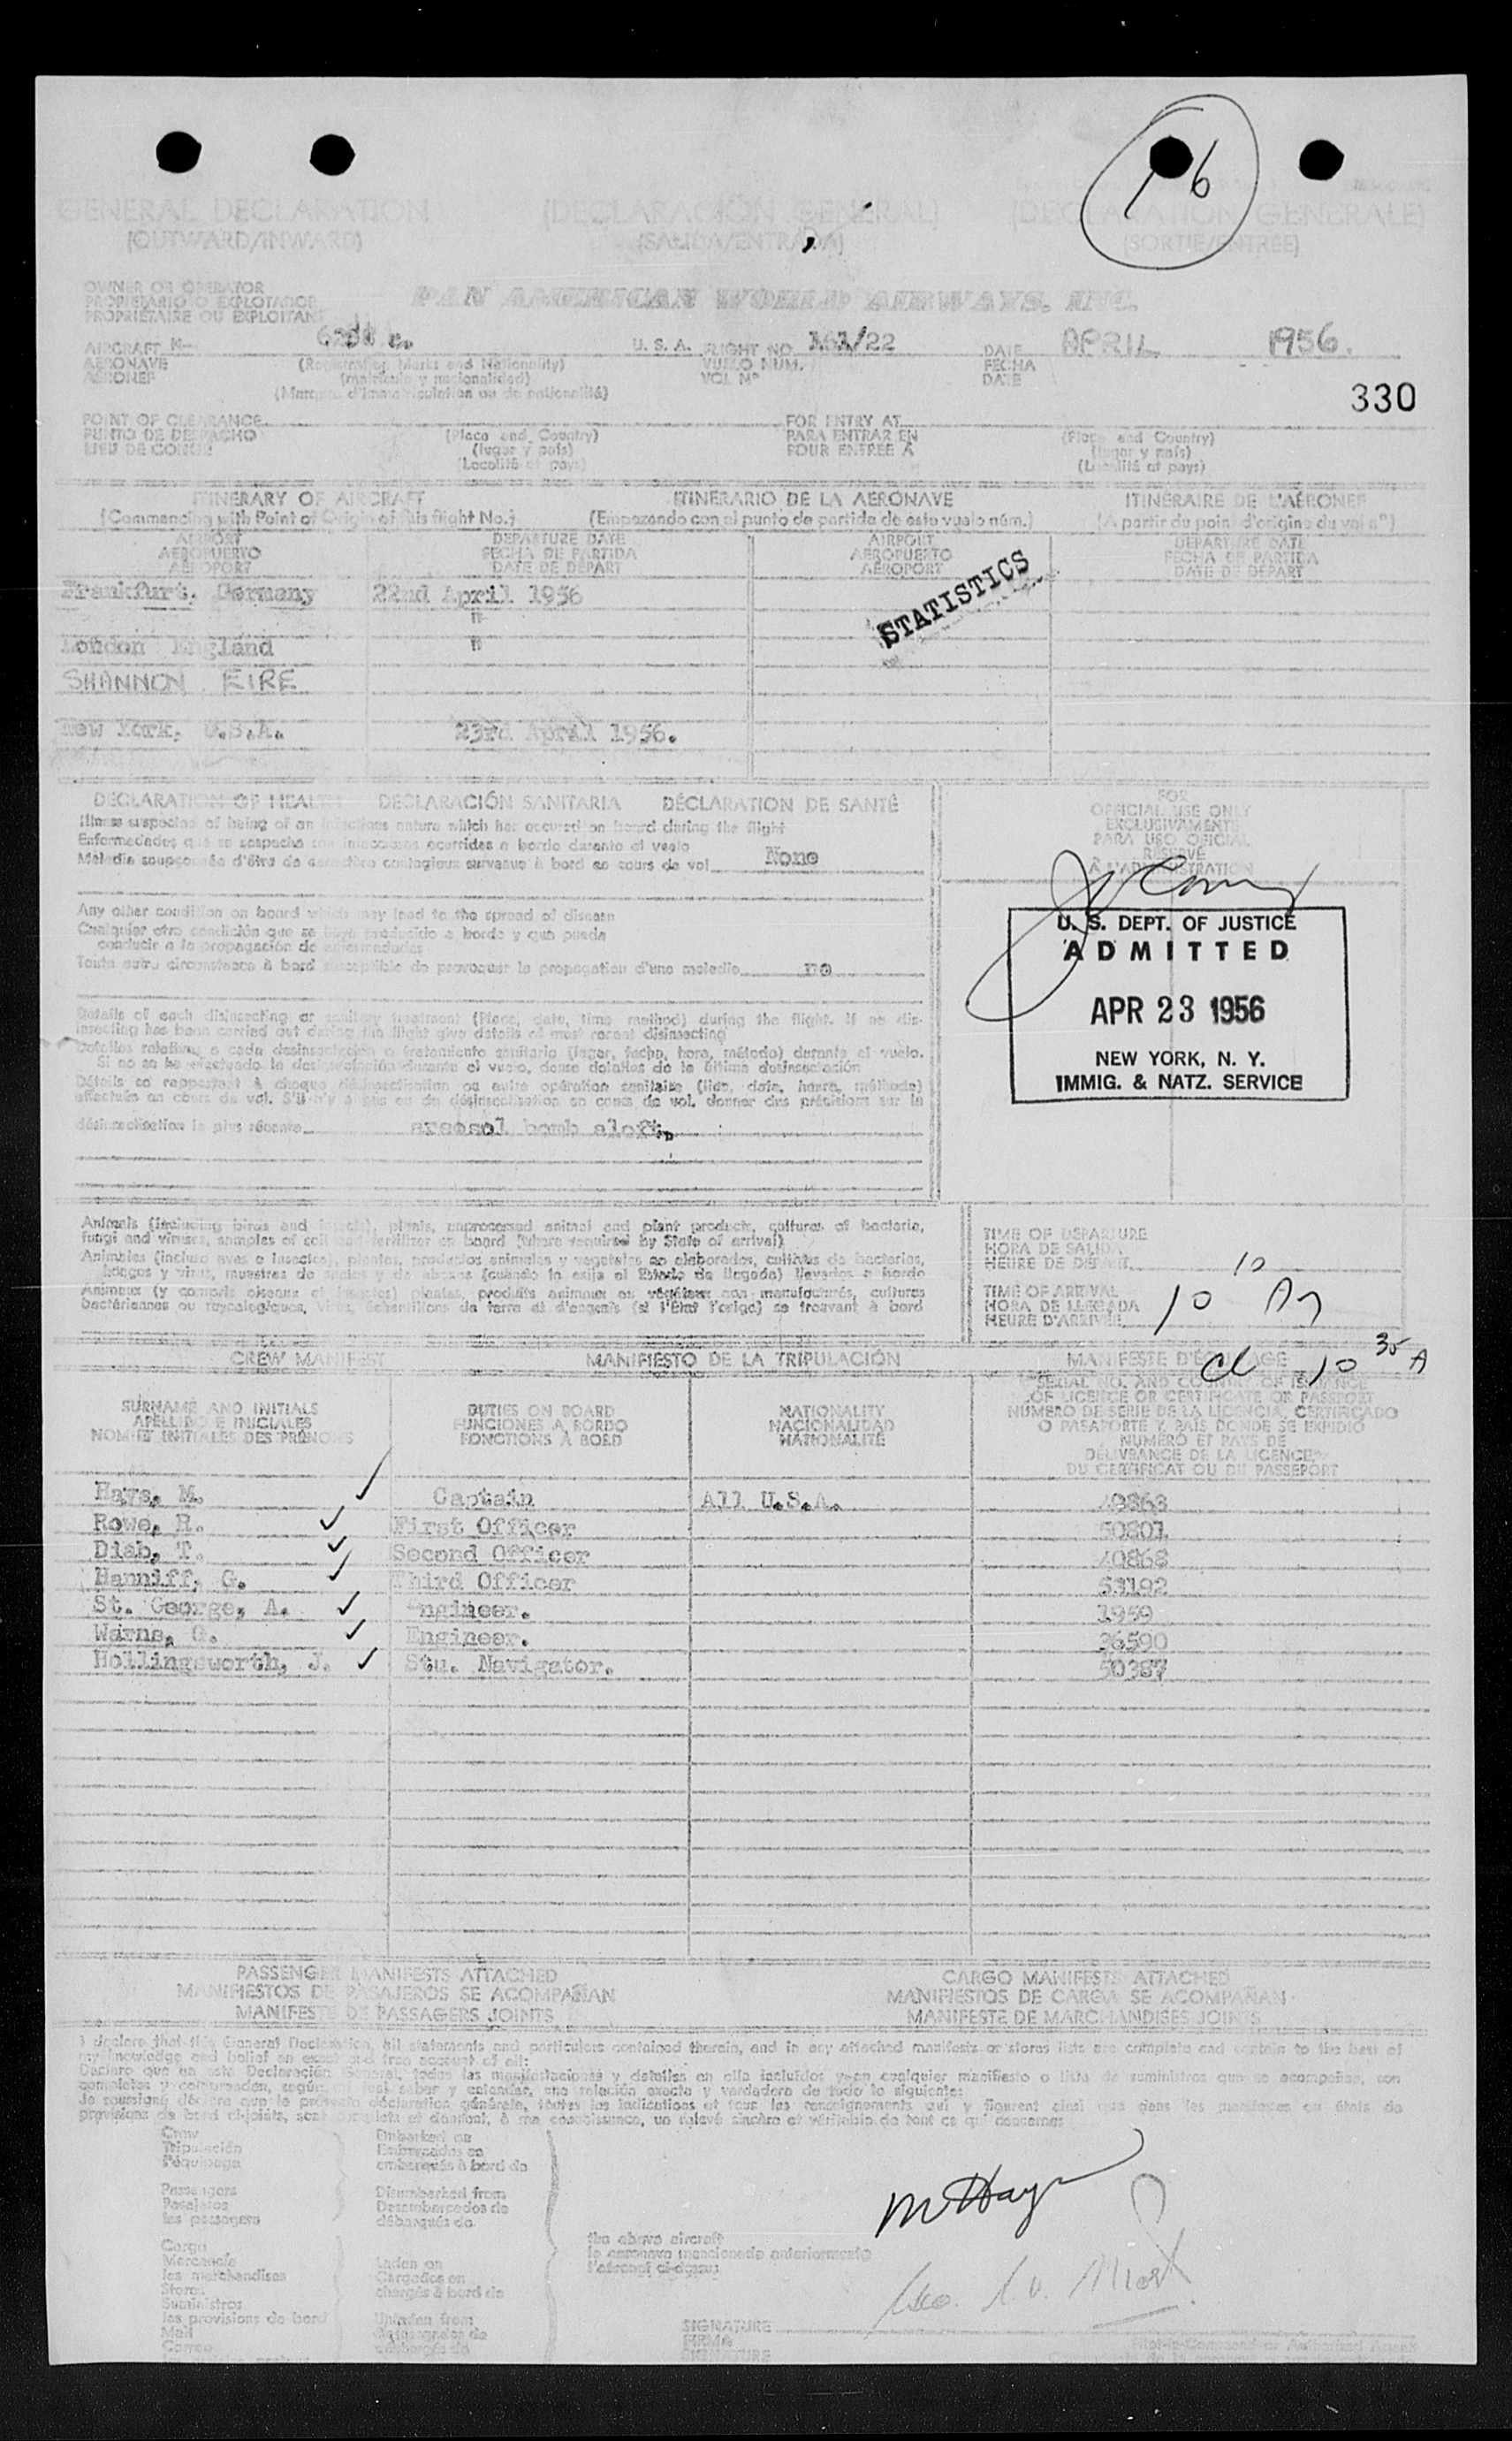 16
GENERAL DECLARATION (DECLARACIÓN GENERAL) (DECLARATION GENERALE)
(OUTWARD/INWARD) (SALIDA/ENTRADA) (SORTIE/ENTRÉE)
OWNER OR OPERATOR
PROPIETARIO O EXPLOTADOR
PROPRIÉTAIRE OU EXPLOITANT
PAN AMERICAN WORLD AIRWAYS, INC.
AIRCRAFT N- U. S. A. FLIGHT NO. 161/22 DATE APRIL 1956.
AERONAVE (Registration Marks and Nationality) VUELO NUM. FECHA
AÉRONEF (matrícula y nacionalidad) VOL Nº DATE
(Marques d'immatriculation ou de nationalité)
330
POINT OF CLEARANCE FOR ENTRY AT
PUNTO DE DESPACHO (Place and Country) PARA ENTRAR EN (Place and Country)
LIEU DE CONGÉ (lugar y país) POUR ENTRÉE À (lugar y país)
(Localité et pays) (Localité et pays)
ITINERARY OF AIRCRAFT ITINERARIO DE LA AERONAVE ITINÉRAIRE DE L'AÉRONEF
(Commencing with Point of Origin of this flight No.) (Empezando con el punto de partida de este vuelo núm.) (A partir du point d'origine du vol nº)
AIRPORT DEPARTURE DATE AIRPORT DEPARTURE DATE
AEROPUERTO FECHA DE PARTIDA AEROPUERTO FECHA DE PARTIDA
AÉROPORT DATE DE DÉPART AÉROPORT DATE DE DÉPART
STATISTICS
Frankfurt, Germany 22nd April 1956
"
London England "
SHANNON EIRE
New York, U.S.A. 23rd April 1956.
DECLARATION OF HEALTH DECLARACIÓN SANITARIA DÉCLARATION DE SANTÉ
Illness suspected of being of an infectious nature which has occurred on board during the flight
Enfermedades que se sospecha son infecciosas ocurridas a bordo durante el vuelo
Maladie soupçonnée d'être de caractère contagieux survenue à bord au cours de vol None
Any other condition on board which may lead to the spread of disease
Cualquier otra condición que se haya producido a bordo y que pueda
conducir a la propagación de enfermedades
Toute autre circonstance à bord susceptible de provoquer la propagation d'une maladie no
Details of each disinsecting or sanitary treatment (Place, date, time method) during the flight. If no dis-
insecting has been carried out during the flight give details of most recent disinsecting
Detalles relativos a cada desinsectación o tratamiento sanitario (lugar, fecha, hora, método) durante el vuelo.
Si no se ha efectuado la desinsectación durante el vuelo, dense detalles de la última desinsectación
Détails se rapportant à chaque désinsectisation ou autre opération sanitaire (lieu, date, heure, méthode)
effectués au cours de vol. S'il n'y a pas eu de désinsectisation en cours de vol, donner des précisions sur la
désinsectisation la plus récente areosol bomb aloft.
FOR
OFFICIAL USE ONLY
EXCLUSIVAMENTE
PARA USO OFICIAL
RÉSERVÉ
À L'ADMINISTRATION
U. S. DEPT. OF JUSTICE
ADMITTED
APR 23 1956
NEW YORK, N. Y.
IMMIG. & NATZ. SERVICE
Animals (including birds and insects), plants, unprocessed animal and plant products, cultures of bacteria,
fungi and viruses, samples of soil and fertilizer on board (where required by State of arrival)
Animales (incluso aves e insectos), plantas, productos animales y vegetales no elaborados, cultivos de bacterias,
hongos y virus, muestras de suelos y de abonos (cuando lo exija el Estado de llegada) llevados a bordo
Animaux (y compris oiseaux et insectes) plantes, produits animaux ou végétaux non manufacturés, cultures
bactériennes ou mycologiques, virus, échantillons de terre et d'engrais (si l'État l'exige) se trouvant à bord
TIME OF DEPARTURE
HORA DE SALIDA
HEURE DE DÉPART 10
TIME OF ARRIVAL
HORA DE LLEGADA
HEURE D'ARRIVÉE 10 A
cl 10 35 A
CREW MANIFEST MANIFIESTO DE LA TRIPULACIÓN MANIFESTE D'ÉQUIPAGE
SURNAME AND INITIALS
APELLIDO E INICIALES
NOM ET INITIALES DES PRÉNOMS
DUTIES ON BOARD
FUNCIONES A BORDO
FONCTIONS À BORD
NATIONALITY
NACIONALIDAD
NATIONALITÉ
SERIAL NO. AND COUNTRY OF ISSUANCE
OF LICENCE OR CERTIFICATE OR PASSPORT
NÚMERO DE SERIE DE LA LICENCIA, CERTIFICADO
O PASAPORTE Y PAÍS DONDE SE EXPIDIÓ
NUMÉRO ET PAYS DE
DÉLIVRANCE DE LA LICENCE,
DU CERTIFICAT OU DU PASSEPORT
Hays, M. Captain All U.S.A. 49868
Rowe, R. First Officer 50801
Diab, T. Second Officer 40868
Hanniff, G. Third Officer 53192
St. George, A. Engineer. 1959
Warns, G. Engineer. 36590
Hollingsworth, J. Stu. Navigator. 50387
PASSENGER MANIFESTS ATTACHED CARGO MANIFESTS ATTACHED
MANIFIESTOS DE PASAJEROS SE ACOMPAÑAN MANIFIESTOS DE CARGA SE ACOMPAÑAN
MANIFESTE DE PASSAGERS JOINTS MANIFESTE DE MARCHANDISES JOINTS
I declare that this General Declaration, all statements and particulars contained therein, and in any attached manifests or stores lists are complete and contain to the best of
my knowledge and belief an exact and true account of all:
Declaro que en esta Declaración General, todas las manifestaciones y detalles en ella incluídos y en cualquier manifiesto o lista de suministros que se acompañan, son
Crew
Tripulación
l'équipage
Embarked on
Embarcados en
embarqués à bord de
Passengers
Pasajeros
les passagers
Disembarked from
Desembarcados de
débarqués de
Cargo
Mercancía
les marchandises
Stores
Suministros
les provisions de bord
Mail
Correo
Laden on
Cargados en
chargés à bord de
Unladen from
the above aircraft
la aeronave mencionada anteriormente
l'aéronef ci-dessus
M Hays
SIGNATURE
FIRMA
SIGNATURE
Pilot-in-Command or Authorized Agent